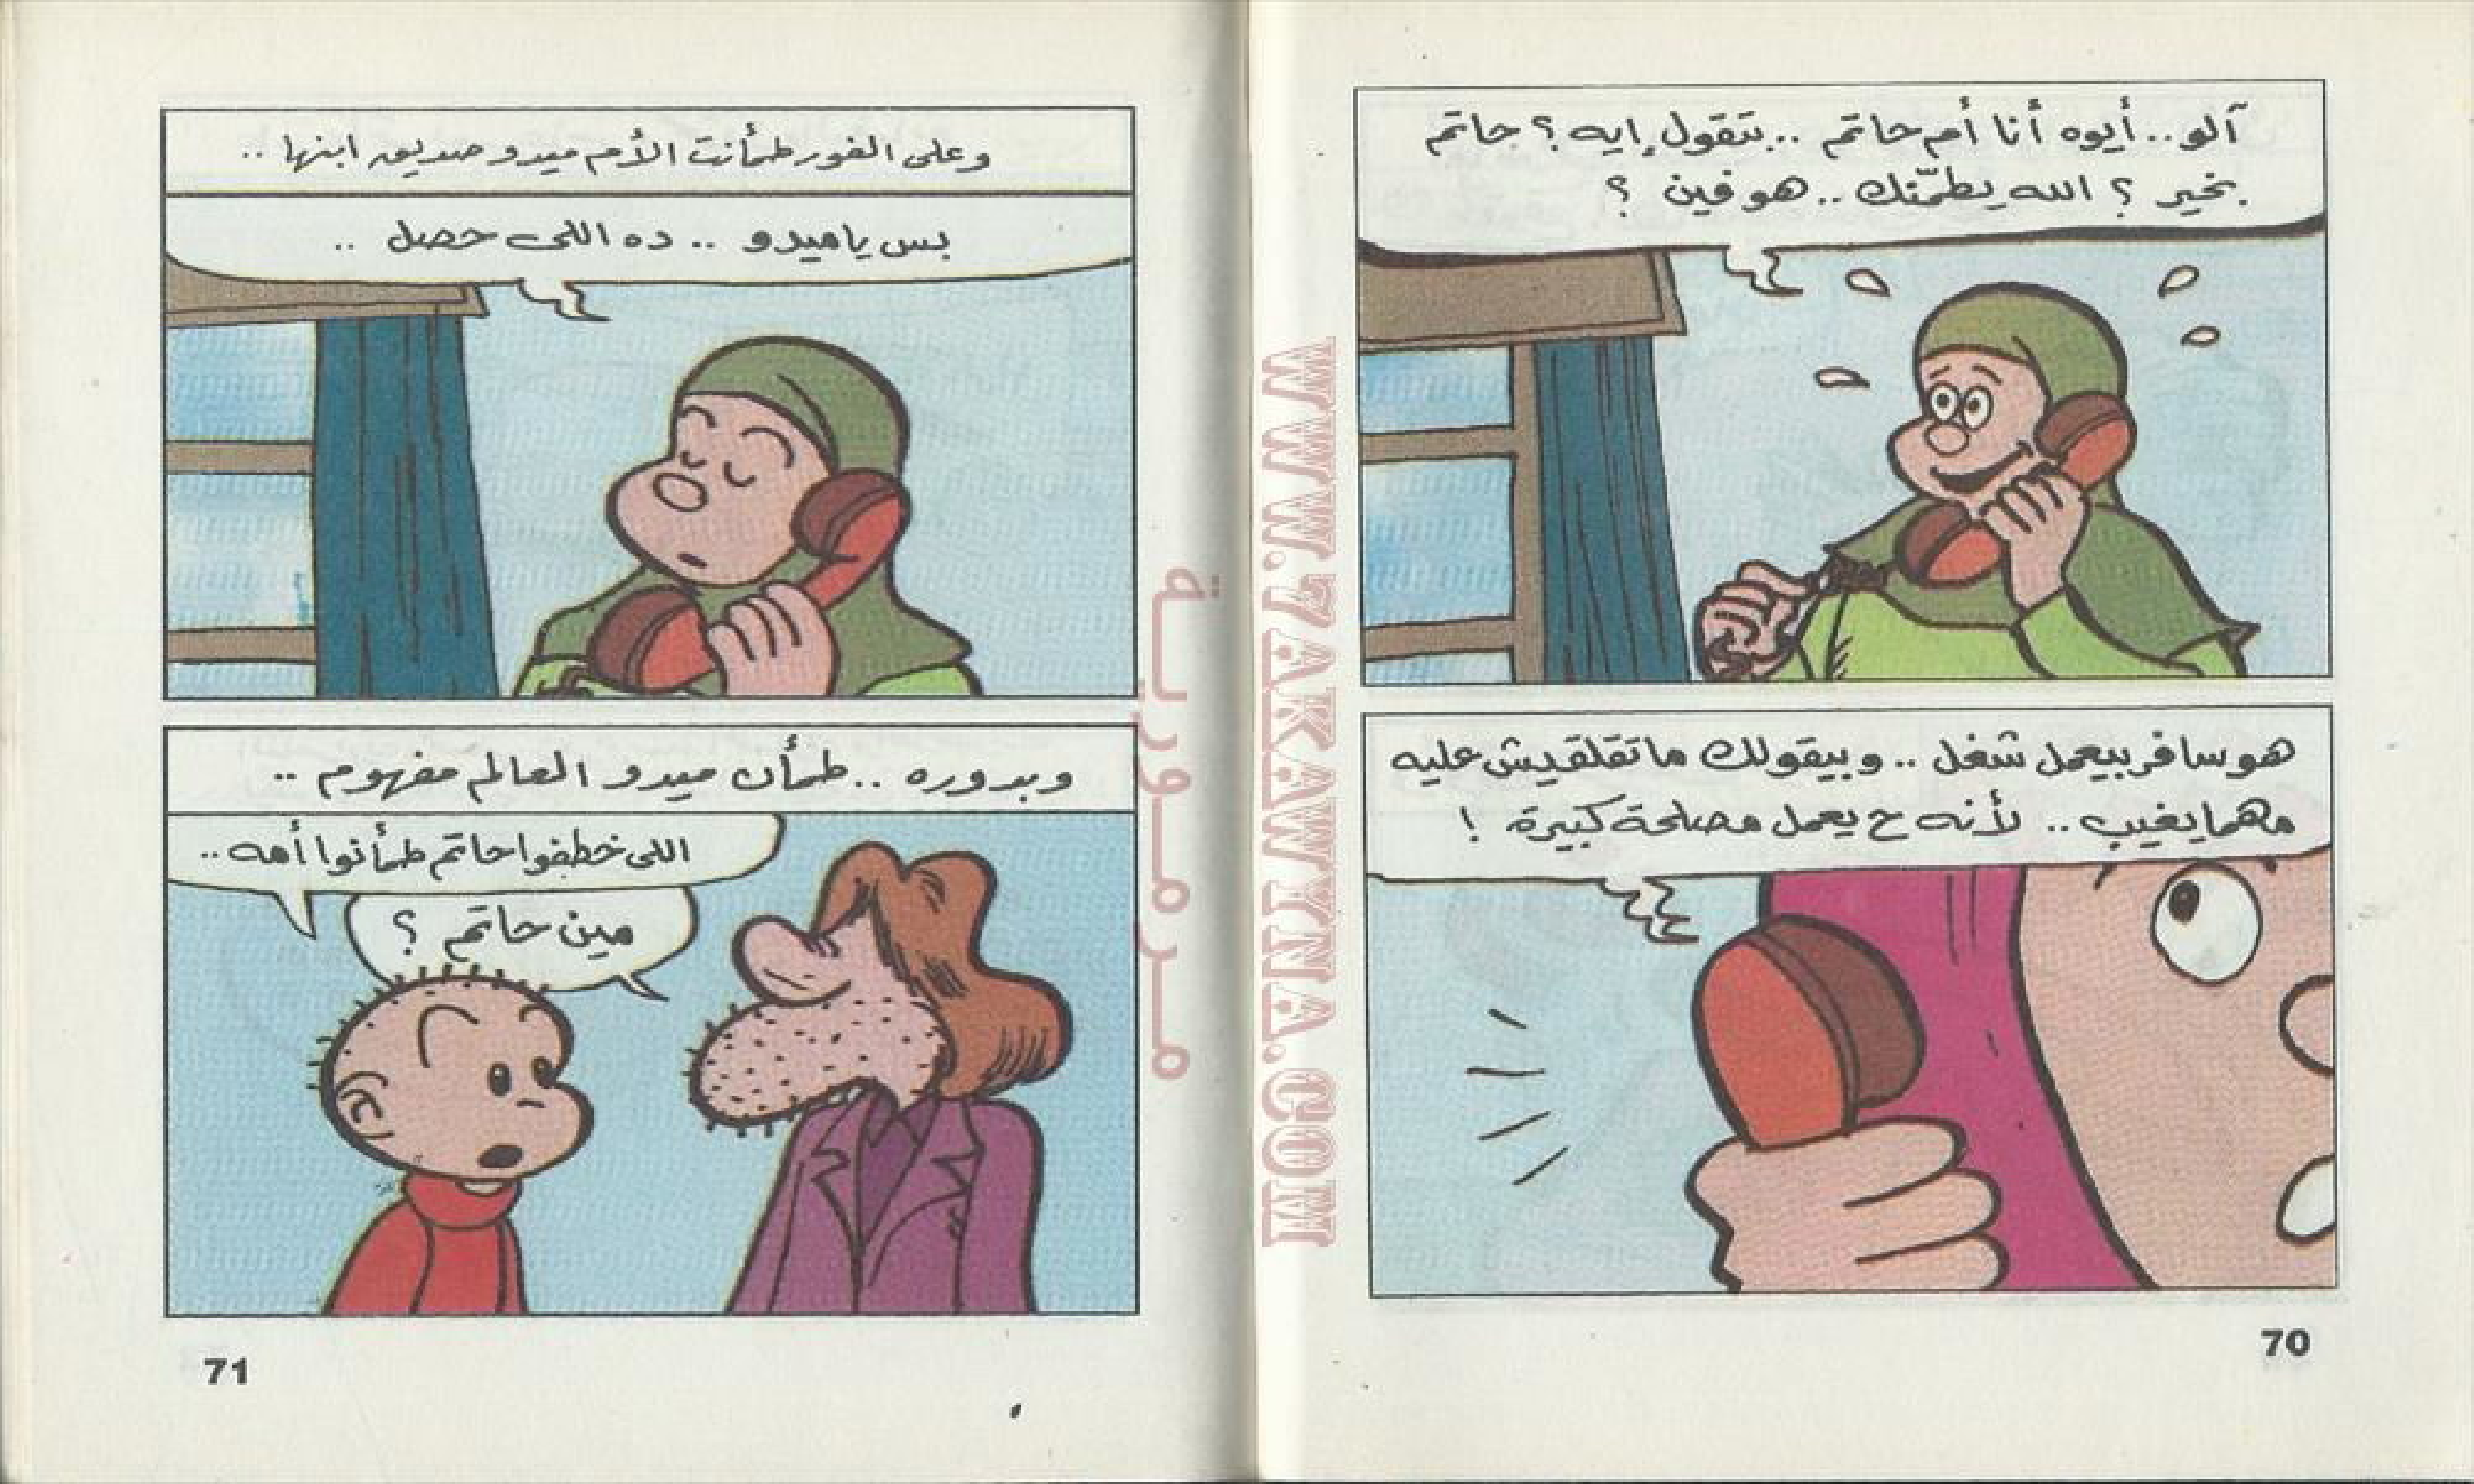 آلو..أيوه أنا أم حاتم ..بتقول إيه ؟ حاتم
بخير ؟ الله يطمّنك ..هو فين ؟
هو سافر بيعمل شغل .. وبيقولك ما تقلقيش عليه
مهما يغيب .. لأنه ح يعمل مصلحة كبيرة !
70
وعلى الفور طمأنت الأم ميدو صديق ابنها ..
بس يا ميدو .. ده اللى حصل ..
وبدوره ..طمأن ميدو العالم مفهوم ..
اللى خطفوا حاتم طمأنوا أمه ..
مين حاتم ؟
71
WWW.7AKAWYNA.COM
مرمورية